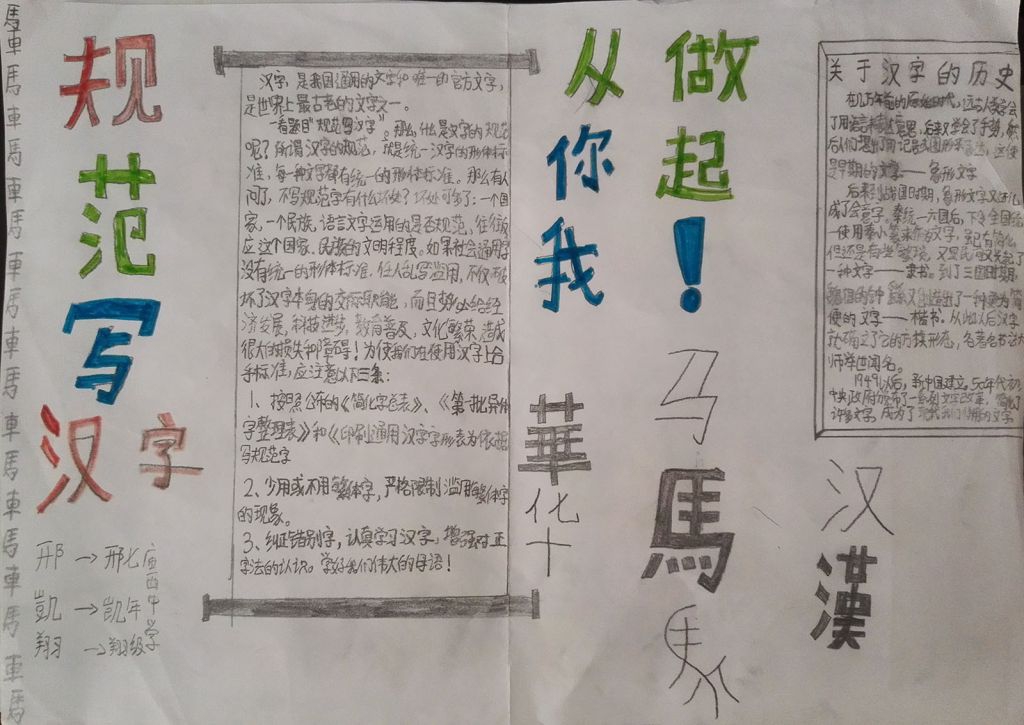 规范写汉字
从你我
做起！
馬車馬車馬車馬車馬車馬車馬車馬車馬車馬
汉字，是我国通用的文字和唯一的官方文字，
是世界上最古老的文字之一。
一看题目“规范写汉字”。那么，什么是汉字的规范
呢？所谓汉字的规范，就是统一汉字的形体标
准，每一种文字都有统一的形体标准。那么有人
问了，不写规范字有什么坏处？坏处可多了：一个国
家，一个民族，语言文字运用的是否规范，往往反
应这个国家、民族的文明程度。如果社会通用字
没有统一的形体标准，任人乱写滥用，不仅破
坏了汉字本身的交际职能，而且势必给经
济发展，科技进步，教育普及，文化繁荣造成
很大的损失和障碍！为使我们在使用汉字上合
乎标准，应注意以下三条：
1、按照公布的《简化字总表》、《第一批异体
字整理表》和《印刷通用汉字字形表为依据
写规范字
2、少用或不用繁体字，严格限制滥用繁体字
的现象。
3、纠正错别字，认真学习汉字，增强对正
字法的认识。学好我们伟大的母语！
華
化
十
马
馬
关于汉字的历史
在几万年前的原始时代，远古人类学会
早期的文字——象形文字
后来到战国时期，象形文字又进化
成了会意字，秦统一六国后，下令全国统
一使用秦小篆来作为汉字，
一种文字——隶书。到了三国时期
便的文字——楷书。从此以后汉字
就确立了它的方块形态，名著名书法大
师举世闻名。
1949以后，新中国建立。50年代初
中央政府颁布了一系列文字改革，简化了
许多文字，成为了现我们用的文字
汉
漢
邢→邢
凱→凯
翔→翔
七年级
庙西中学